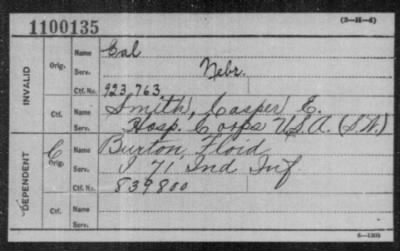 (3-H-4)
1100135
INVALID
Orig.
Name Cal
Serv. Nebr.
Ctf. No. 923,763
Ctf.
Name Smith, Casper E.
Serv. Hosp. Corps U.S.A. (S.W.)
DEPENDENT
C
Orig.
Name Burton, Floid
Serv. I 71 Ind Inf
Ctf. No. 839800
Ctf.
Name
Serv.